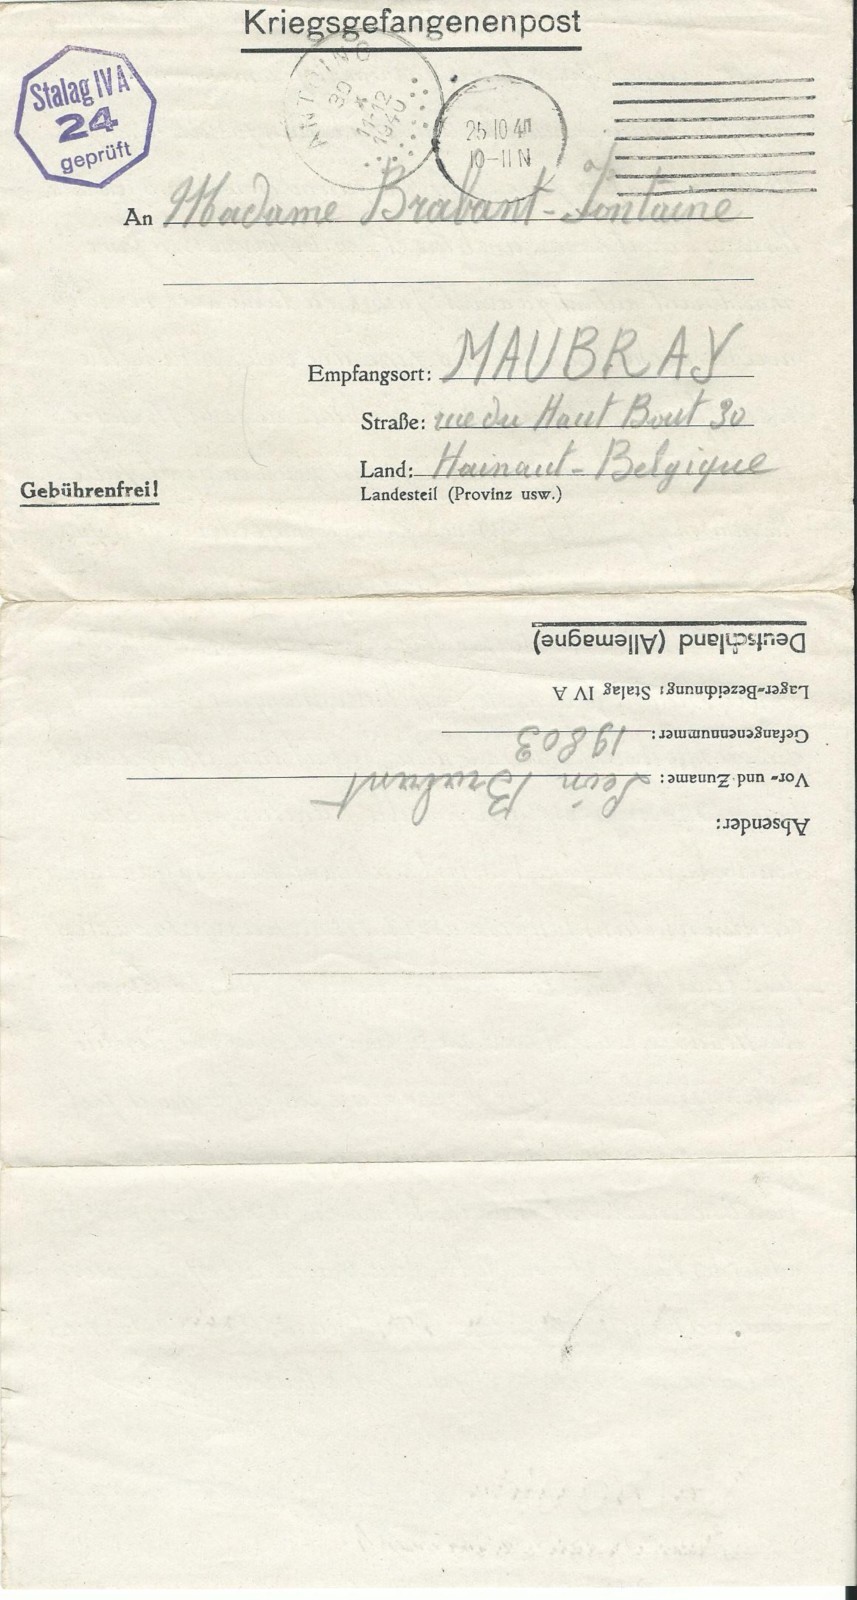 Kriegsgefangenenpost
Stalag IV A
24
geprüft
ANTOING
30
11-12
1940
25 10 40
10-11 N
An Madame Brabant-Fontaine
Empfangsort: MAUBRAY
Straße: rue du Haut Bout 30
Land: Hainaut - Belgique
Landesteil (Provinz usw.)
Gebührenfrei!
Absender:
Vor- und Zuname: Brabant
Gefangenennummer: 19803
Lager-Bezeichnung: Stalag IV A
Deutschland (Allemagne)